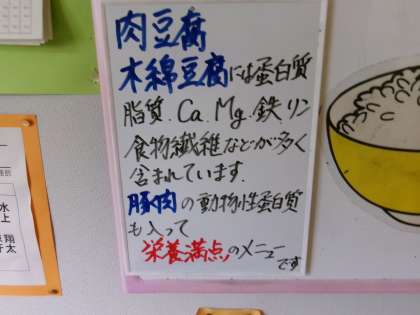 肉豆腐
木綿豆腐には蛋白質
脂質.Ca.Mg.鉄リン
食物繊維などが多く
含まれています.
豚肉の動物性蛋白質
も入って
栄養満点のメニュー
です
水
上
翔
太